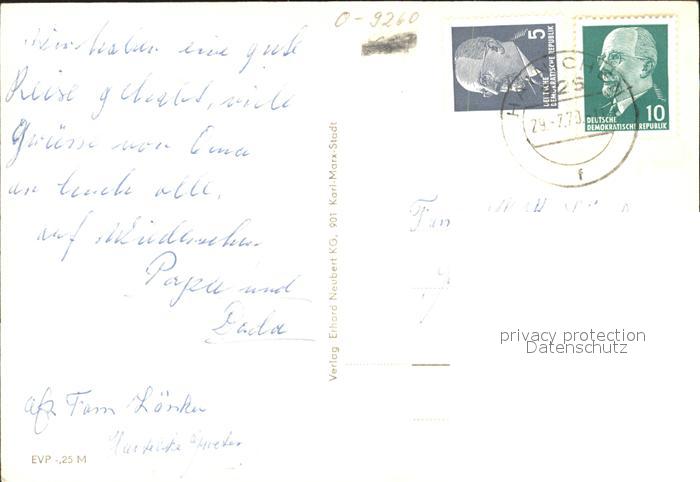 O-9260
Wir haben eine gute
Reise gehabt, viele
Grüsse von Oma
an Euch alle.
auf Wiedersehen
Papa und
Dada
Fam
5
DEUTSCHE
DEMOKRATISCHE REPUBLIK
10
DEUTSCHE
DEMOKRATISCHE REPUBLIK
29.-7.70
f
Verlag Erhard Neubert KG, 901 Karl-Marx-Stadt
privacy protection
Datenschutz
Fam
EVP -,25 M